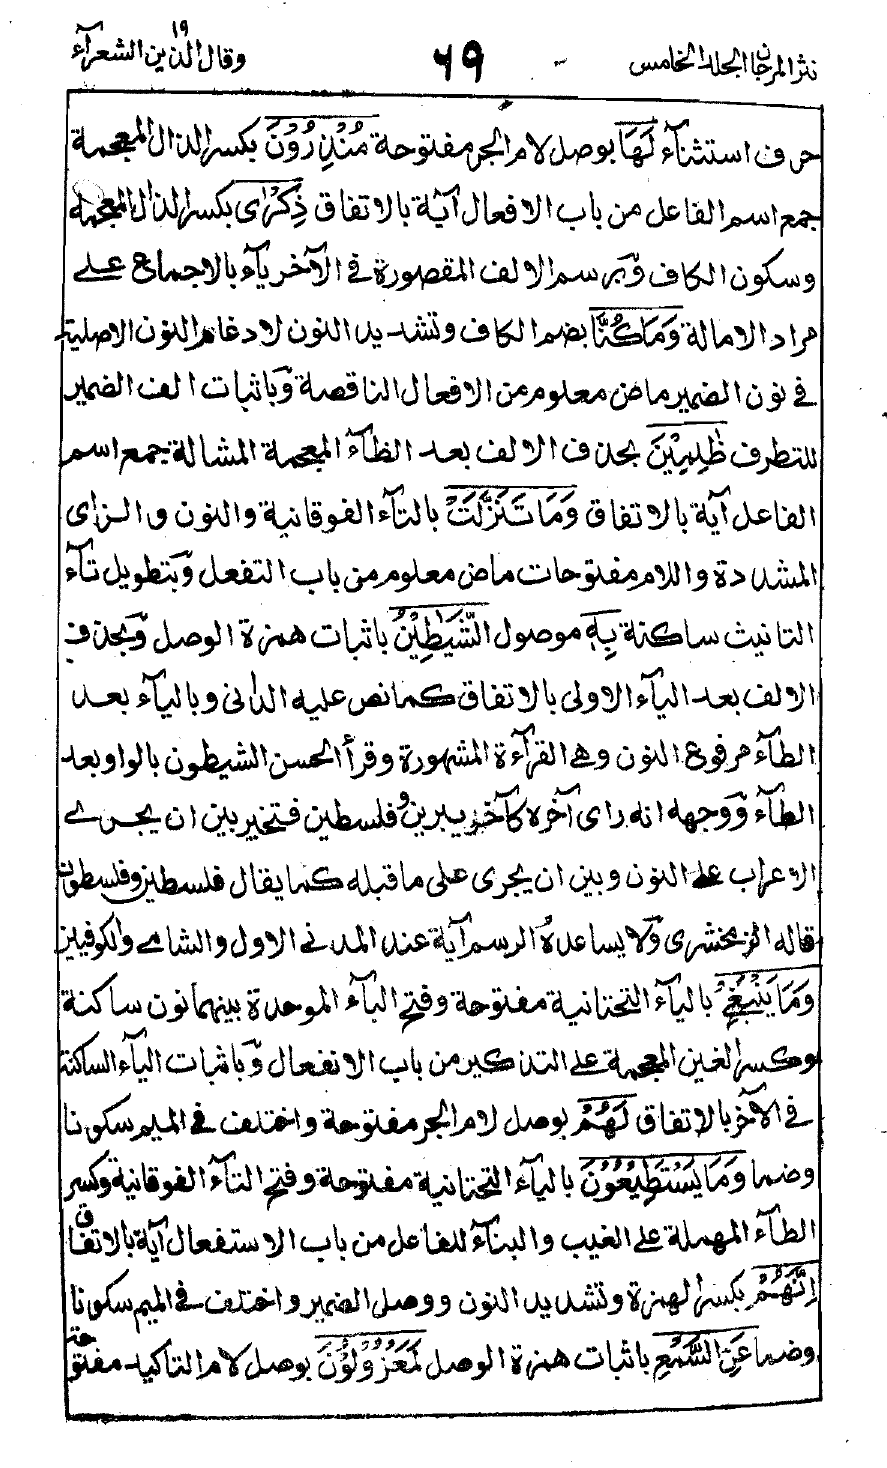 نثر المرجان الجلد الخامس ٦٩ وقال الذين ١٩ الشعرآء
حرف استثنآء لَهَا بوصل لام الجر مفتوحة مُنْذِرُوْنَ بكسر الذال المعجمة
جمع اسم الفاعل من باب الافعال آية بالاتفاق ذِكْرٰى بكسر الذال المعجمة
وسكون الكاف وبرسم الالف المقصورة فى الآخر يآء بالاجماع على
مراد الامالة وَمَا كُنَّا بضم الكاف وتشديد النون لادغام النون الاصلية
فى نون الضمير ماض معلوم من الافعال الناقصة وباثبات الف الضمير
للتطرف ظٰلِمِيْنَ بحذف الالف بعد الظآء المعجمة المشالة جمع اسم
الفاعل آية بالاتفاق وَمَا تَنَزَّلَتْ بالتآء الفوقانية والنون والزاى
المشددة واللام مفتوحات ماض معلوم من باب التفعل وبتطويل تآء
التانيث ساكنة بِهِ موصول الشَّيٰطِيْنُ باثبات همزة الوصل وبحذف
الالف بعد اليآء الاولى بالاتفاق كما نص عليه الدانى وباليآء بعد
الطآء مرفوع النون وهى القرآءة المشهورة وقرأ الحسن الشيطون بالواو بعد
الطآء ووجهه انه راى آخره كآخر يبرين وفلسطين فتخير بين ان يجرى
الاعراب على النون وبين ان يجرى على ما قبله كما يقال فلسطين وفلسطون
قاله الزمخشرى ولا يساعده الرسم آية عند المدنى الاول والشامى والكوفيين
وَمَا يَنْبَغِىْ باليآء التحتانية مفتوحة وفتح البآء الموحدة بينهما نون ساكنة
وكسر الغين المعجمة على التذكير من باب الانفعال وباثبات اليآء الساكنة
فى الآخر بالاتفاق لَهُمْ بوصل لام الجر مفتوحة واختلف فى الميم سكونا
وضما وَمَا يَسْتَطِيْعُوْنَ باليآء التحتانية مفتوحة وفتح التآء الفوقانية وكسر
الطآء المهملة على الغيب والبنآء للفاعل من باب الاستفعال آية بالاتفاق
اِنَّهُمْ بكسر الهمزة وتشديد النون ووصل الضمير واختلف فى الميم سكونا
وضما عَنِ السَّمْعِ باثبات همزة الوصل لَمَعْزُوْلُوْنَ بوصل لام التاكيد مفتوحة